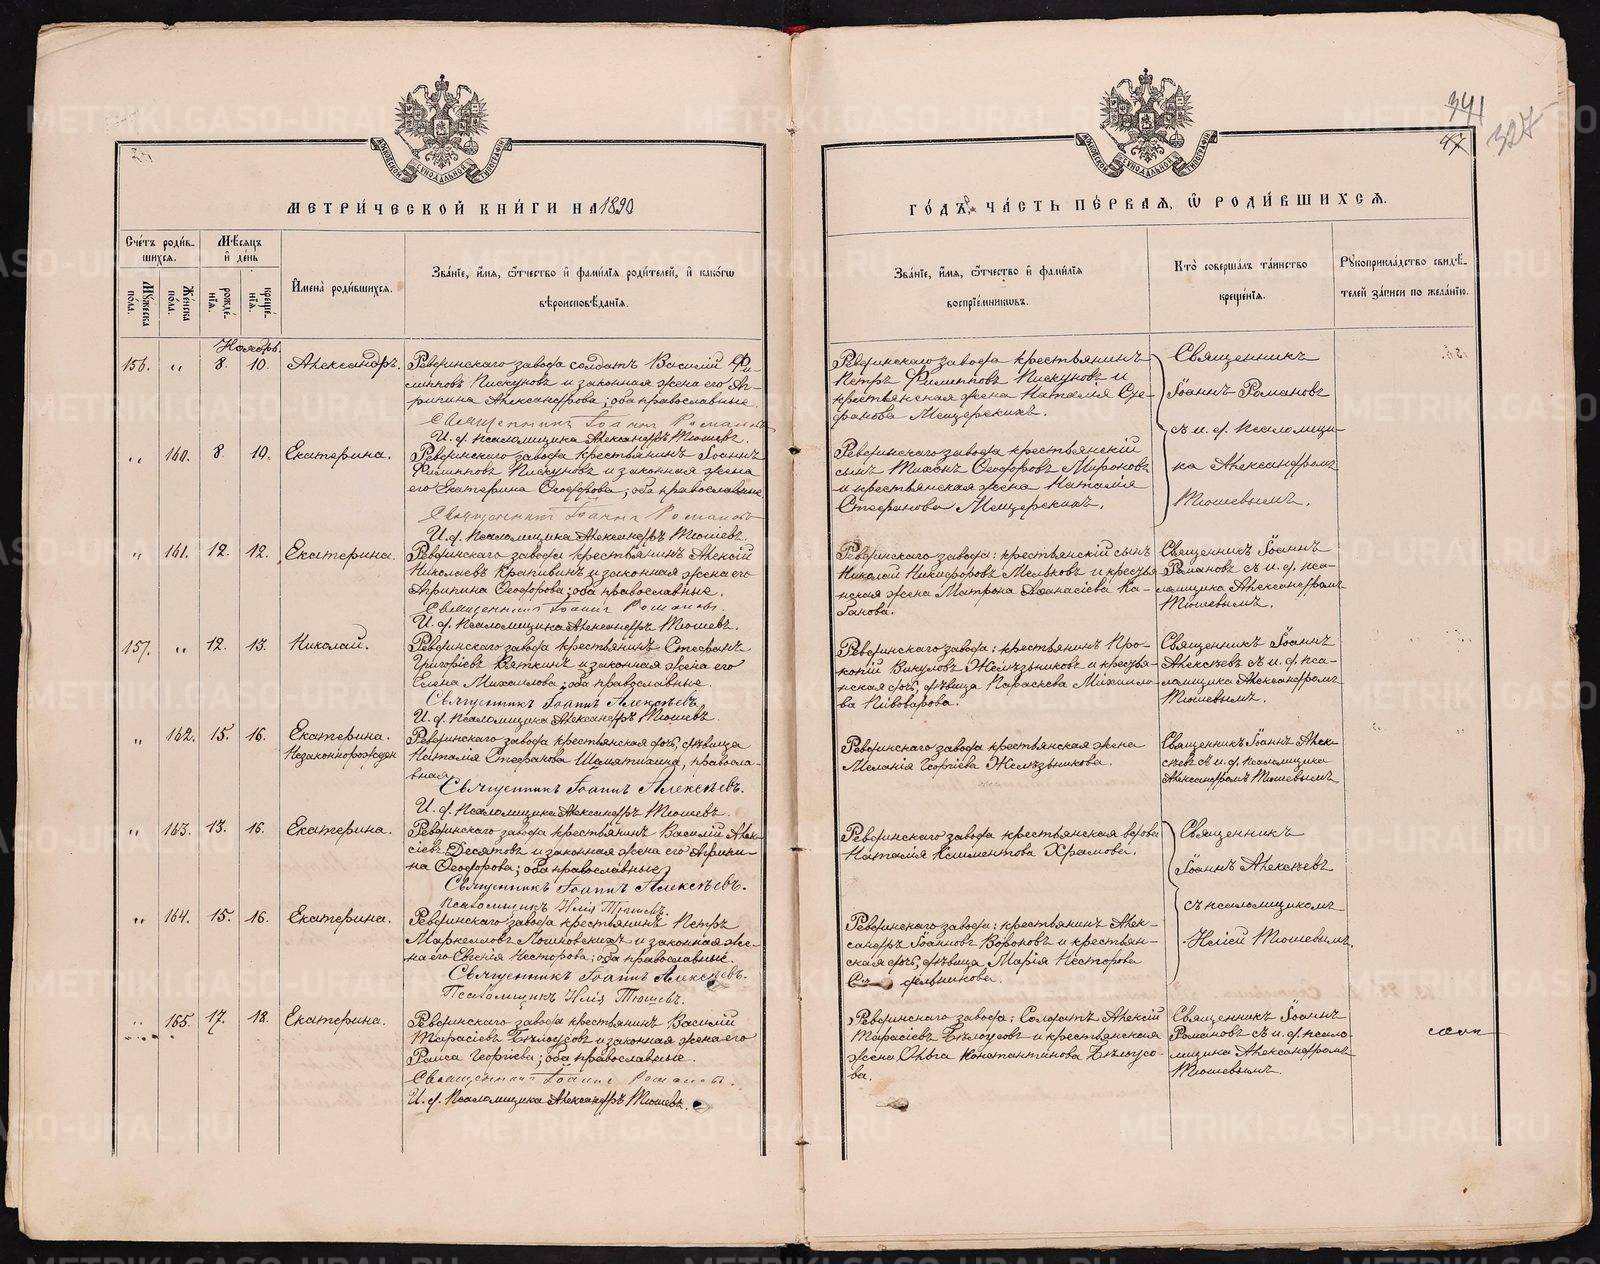 МЕТРИ́ЧЕСКОЙ КНИ́ГИ НА 1890
ГО́ДЪ, ЧА́СТЬ ПЕ́РВАЯ, Ѿ РОДИ́ВШИХСЯ.
341
47
327
МОСКОВСКОЙ СѴНОДАЛЬНОЙ ТѴПОГРАФІИ
МОСКОВСКОЙ СѴНОДАЛЬНОЙ ТѴПОГРАФІИ
Сче́тъ роди́в-
шихся.
Мѣсяцъ
и́ де́нь
Му́жеска по́ла.
Же́нска по́ла.
рожде́-
нія.
креще́-
нія.
И́мена̀ роди́вшихся.
Зва́ніе, и́мя, ѻ҆́тчество и́ фами́лія роди́телей, и́ како́гѡ
вѣроисповѣ́данія.
Зва́ніе, и́мя, ѻ҆́тчество и́ фами́лія
воспріе́мниковъ.
Кто̀ соверша́лъ та́инство
креще́нія.
Рукоприкла́дство свидѣ́-
телей за́писи по жела́нію.
Ноябрь
156. „ 8. 10. Александръ.
Ревдинскаго завода солдатъ Василий Фи-
липповъ Пискуновъ и законная жена его Аг-
рипина Александрова; оба православные.
Священникъ Іоаннъ Романовъ
И. д. псаломщика Александръ Тюшевъ.
Ревдинскаго завода крестьянинъ
Петръ Филипповъ Пискуновъ и
крестьянская жена Наталія Сте-
фанова Мещерскихъ.
Священникъ
Іоаннъ Романовъ
съ и. д. псаломщи-
ка Александромъ
Тюшевымъ.
„ 160. 8. 10. Екатерина.
Ревдинскаго завода крестьянинъ Іоаннъ
Филипповъ Пискуновъ и законная жена
его Екатерина Ѳеодорова; оба православные
Священникъ Іоаннъ Романовъ
И. д. Псаломщика Александръ Тюшевъ.
Ревдинскаго завода крестьянскій
сынъ Тихонъ Ѳеодоровъ Мироновъ
и крестьянская жена Наталія
Стефанова Мещерскихъ.
„ 161. 12. 12. Екатерина.
Ревдинскаго завода крестьянинъ Алексій
Николаевъ Крапивинъ и законная жена его
Агрипина Ѳеодорова; оба православные.
Священникъ Іоаннъ Романовъ.
И. д. Псаломщика Александръ Тюшевъ.
Ревдинскаго завода: крестьянскій сынъ
Николай Никифоровъ Мельковъ и крестья-
нская жена Матрона Аѳанасіева Ка-
Священникъ Іоаннъ
Романовъ съ и. д. пса-
ломщика Александромъ
Тюшевымъ.
157. „ 12. 13. Николай.
Ревдинскаго завода крестьянинъ Стефанъ
Григоріевъ Вяткинъ и законная жена его
Елена Михаилова; оба православные.
Священникъ Іоаннъ Алексѣевъ
И. д. псаломщика Александръ Тюшевъ.
Ревдинскаго завода: крестьянинъ Про-
копій Викуловъ Желѣзниковъ и крестья-
нская дочь, дѣвица Параскева Михаило-
ва Пивоварова.
Священникъ Іоаннъ
Алексѣевъ съ и. д. пса-
ломщика Александромъ
Тюшевымъ.
„ 162. 15. 16. Екатерина.
Незаконнорожден
Ревдинскаго завода крестьянская дочь, дѣвица
Наталия Стефанова Шамятихина, правосла-
вная.
Священникъ Іоаннъ Алексѣевъ.
И. д. псаломщика Александръ Тюшевъ.
Ревдинскаго завода крестьянская жена
Меланія Георгіева Желѣзникова.
Священникъ Іоаннъ Алек-
сѣевъ съ и. д. псаломщика
Александромъ Тюшевымъ
„ 163. 13. 16. Екатерина.
Ревдинскаго завода крестьянинъ Василій Алек-
сіевъ Десятовъ и законная жена его
на Ѳеодорова; оба православные
Священникъ Іоаннъ Алексѣевъ.
Псаломщикъ Илія Тюшевъ.
Ревдинскаго завода крестьянская вдова
Наталія Климентова Храмова.
Священникъ
Іоаннъ Алексѣевъ
съ псаломщикомъ
Иліей Тюшевымъ.
„ 164. 15. 16. Екатерина.
Ревдинскаго завода крестьянинъ Петръ
Маркелловъ и законная же-
на его Евгенія Несторова; оба православные.
Священникъ Іоаннъ Алексѣевъ.
Псаломщикъ Илія Тюшевъ.
Ревдинскаго завода: крестьянинъ Алек-
сандръ Іоанновъ Вороновъ и крестьян-
ская дочь, дѣвица Марія Несторова
„ 165. 17. 18. Екатерина.
Ревдинскаго завода крестьянинъ Василій
Тарасіевъ Бѣлоусовъ и законная жена его
Раиса Георгіева; оба православные.
Священникъ Іоаннъ Романовъ.
И. д. Псаломщика Александръ Тюшевъ.
Ревдинскаго завода: Солдатъ Алексій
Тарасіевъ Бѣлоусовъ и крестьянская
жена Ольга Константинова Бѣлоусо-
ва.
Священникъ Іоаннъ
Романовъ съ и. д. псало-
мщика Александромъ
Тюшевымъ.
METRIKI.GASO-URAL.RU